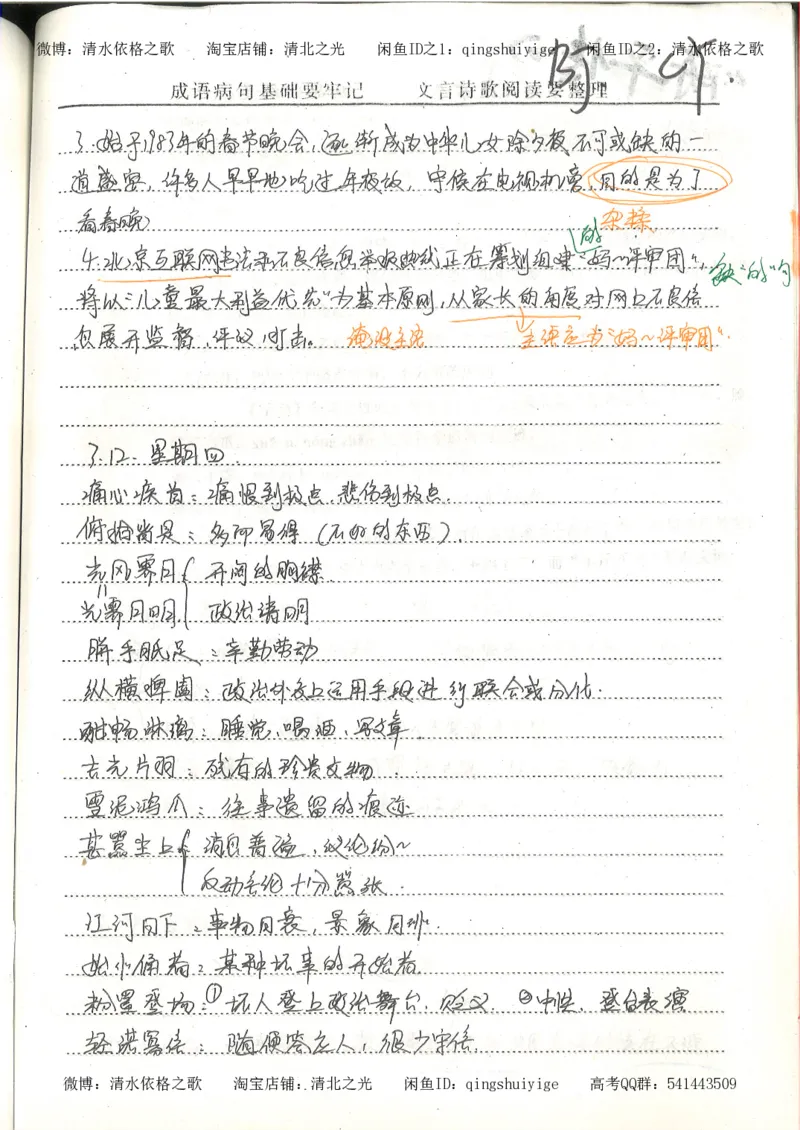 微博：清水依格之歌 淘宝店铺：清北之光 闲鱼ID之1：qingshuiyige 闲鱼ID之2：清水依格之歌
成语病句基础要牢记 文言诗歌阅读要整理
3.始于1983年的春节晚会，逐渐成为中华儿女除夕夜不可或缺的一
道盛宴，许多人早早地吃过年夜饭，守候在电视机旁，目的是为了
看春晚
杂糅
的
4.北京互联网违法和不良信息举报热线正在筹划组建"妈~评审团"，缺"的"句
将以"儿童最大利益优先"为基本原则，从家长的角度对网上不良信
息展开监督，评议 淹没主语 主语应为"妈~评审团"．
3.12. 星期四
痛心疾首：痛恨到极点，悲伤到极点．
俯拾尚是：多而易得（不好的东西）．
光风霁月 开阔的胸襟
光霁月明 政治清明
胼手胝足：辛勤劳动
纵横捭阖：政治外交上运用手段进行联合或分化．
酣畅淋漓：睡觉，喝酒，写文章
吉光片羽：残存的珍贵文物
雪泥鸿爪：往事遗留的痕迹
甚嚣尘上 消息普遍，议论纷~
反动言论十分嚣张．
江河日下：事物日衰，景象日非．
始作俑者：某种坏事的开始者．
粉墨登场：①坏人登上政治舞台．贬义． ②中性．登台表演
轻诺寡信：随便答应人，很少守信．
微博：清水依格之歌 淘宝店铺：清北之光 闲鱼ID：qingshuiyige 高考QQ群：541443509